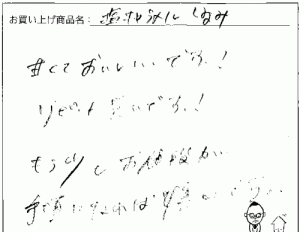 お買い上げ商品名：塩キャラメルくるみ
甘くておいしいです！
リピート買いです！
もう少しお値段が
手頃になれば嬉しいです。